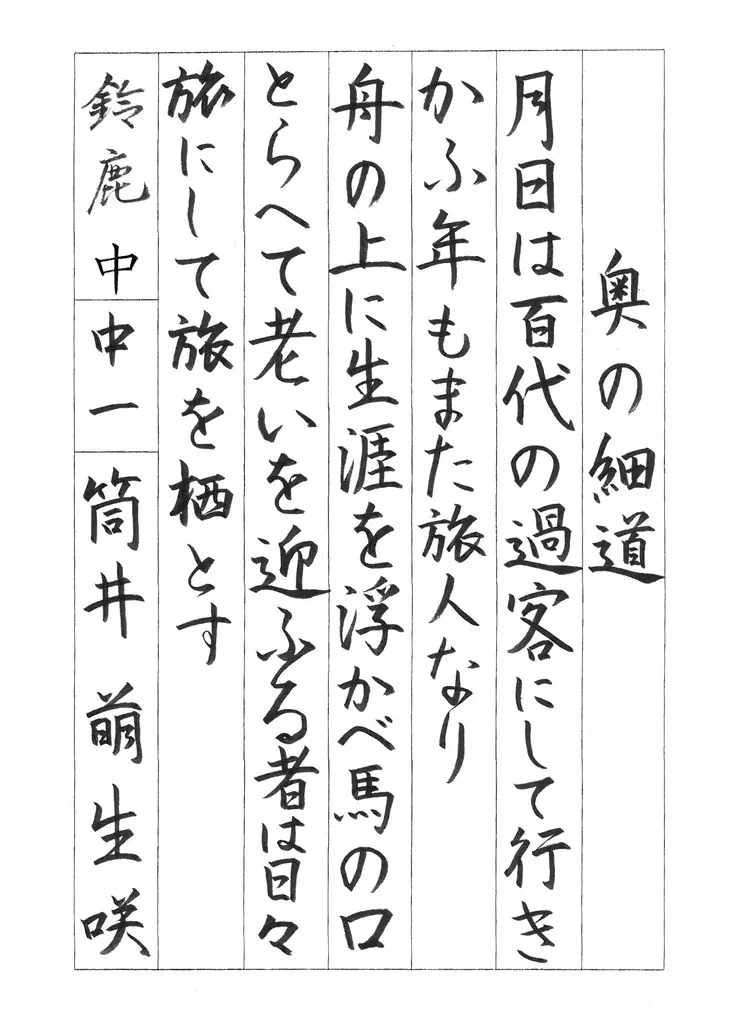 奥の細道
月日は百代の過客にして行き
かふ年もまた旅人なり
舟の上に生涯を浮かべ馬の口
とらへて老いを迎ふる者は日々
旅にして旅を栖とす
鈴鹿中
中一
筒井萌生咲